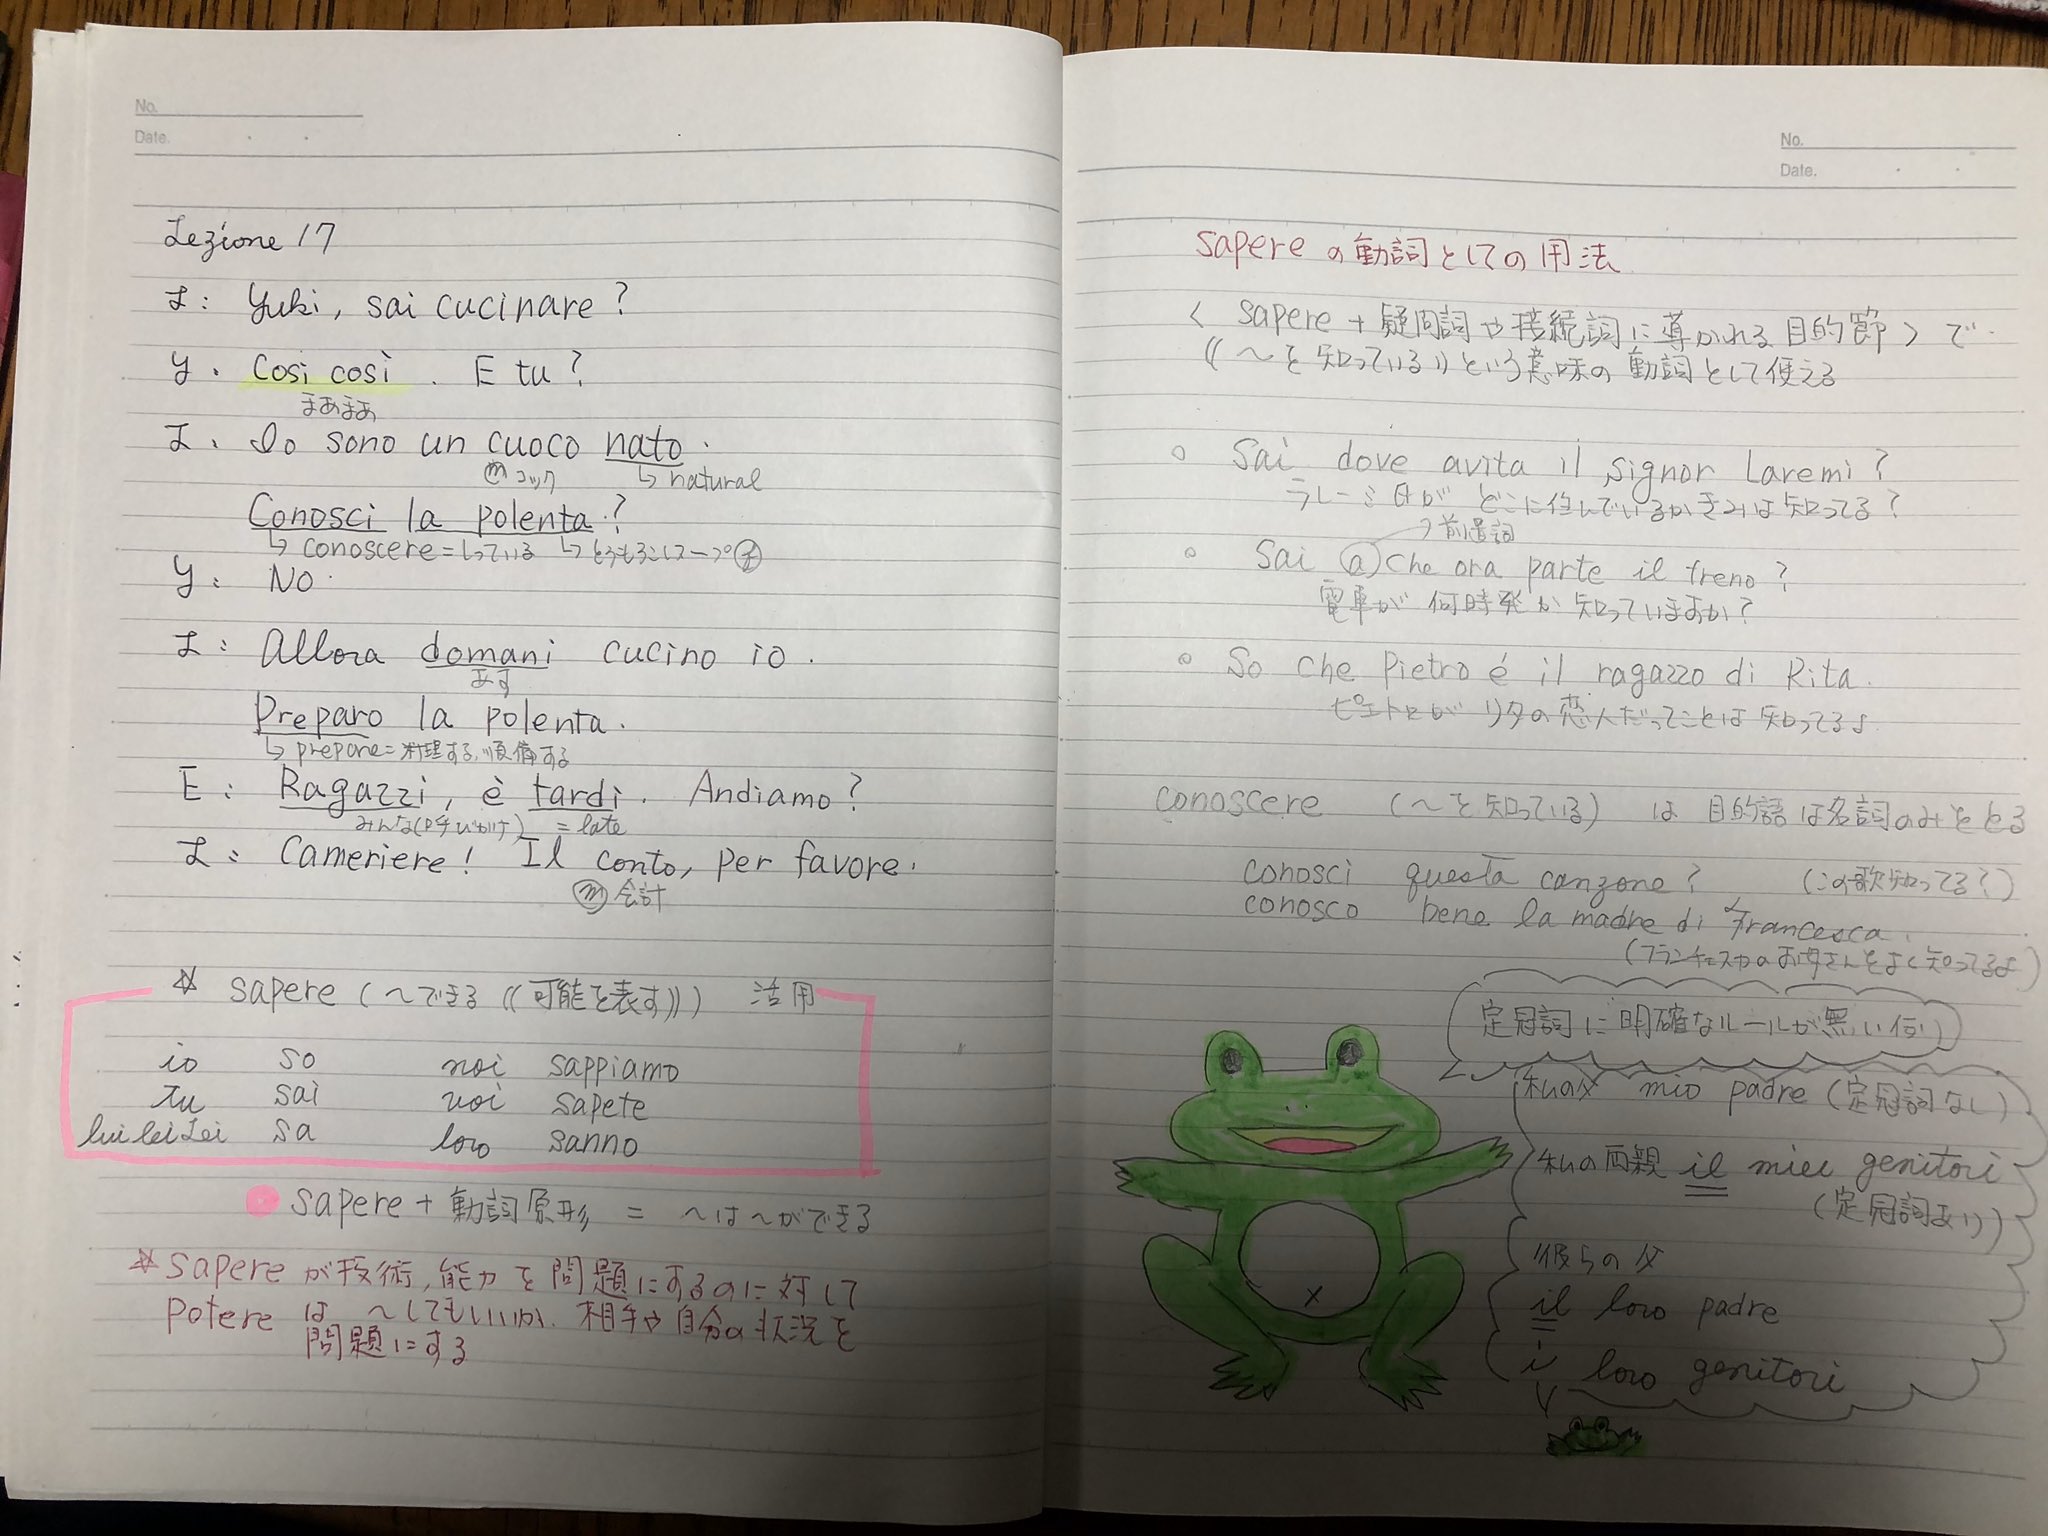 No.
Date.
Lezione 17
L: Yuki, sai cucinare?
Y. Così così. E tu?
まあまあ
L. Io sono un cuoco nato.
ⓜコック ↳ natural
Conosci la polenta?
↳ conoscere=しっている ↳ とうもろこしスープⓕ
Y: No.
L: Allora domani cucino io.
あす
Preparo la polenta.
↳ prepare=料理する、準備する
E: Ragazzi, è tardi. Andiamo?
みんな(呼びかけ) =late
L: Cameriere! Il conto, per favore.
ⓜ会計
☆ sapere (〜できる《可能を表す》) 活用
io so noi sappiamo
tu sai voi sapete
lui lei Lei sa loro sanno
● sapere+動詞原形 = 〜は〜ができる
☆sapereが技術,能力を問題にするのに対して
potere は 〜してもいいか. 相手や自分の状況を
問題にする
No.
Date.
sapereの動詞としての用法
< sapere+疑問詞や接続詞に導かれる目的節>で
《〜を知っている》という意味の動詞として使える
○ Sai dove avita il signor Laremi?
ラレーミ氏がどこに住んでいるかきみは知ってる?
→前置詞
○ Sai ⓐ che ora parte il treno?
電車が何時発か知っていますか?
○ So che Pietro é il ragazzo di Rita.
ピエトロがリタの恋人だってことは知ってるよ
conoscere (〜を知っている) は目的語は名詞のみをとる
conosci questa canzone? (この歌知ってる?)
conosco bene la madre di Francesca.
(フランチェスカのお母さんをよく知ってるよ)
定冠詞に明確なルールが無い例
私の父 mio padre (定冠詞なし)
私の両親 il miei genitori
(定冠詞あり)
彼らの父
il loro padre
i loro genitori